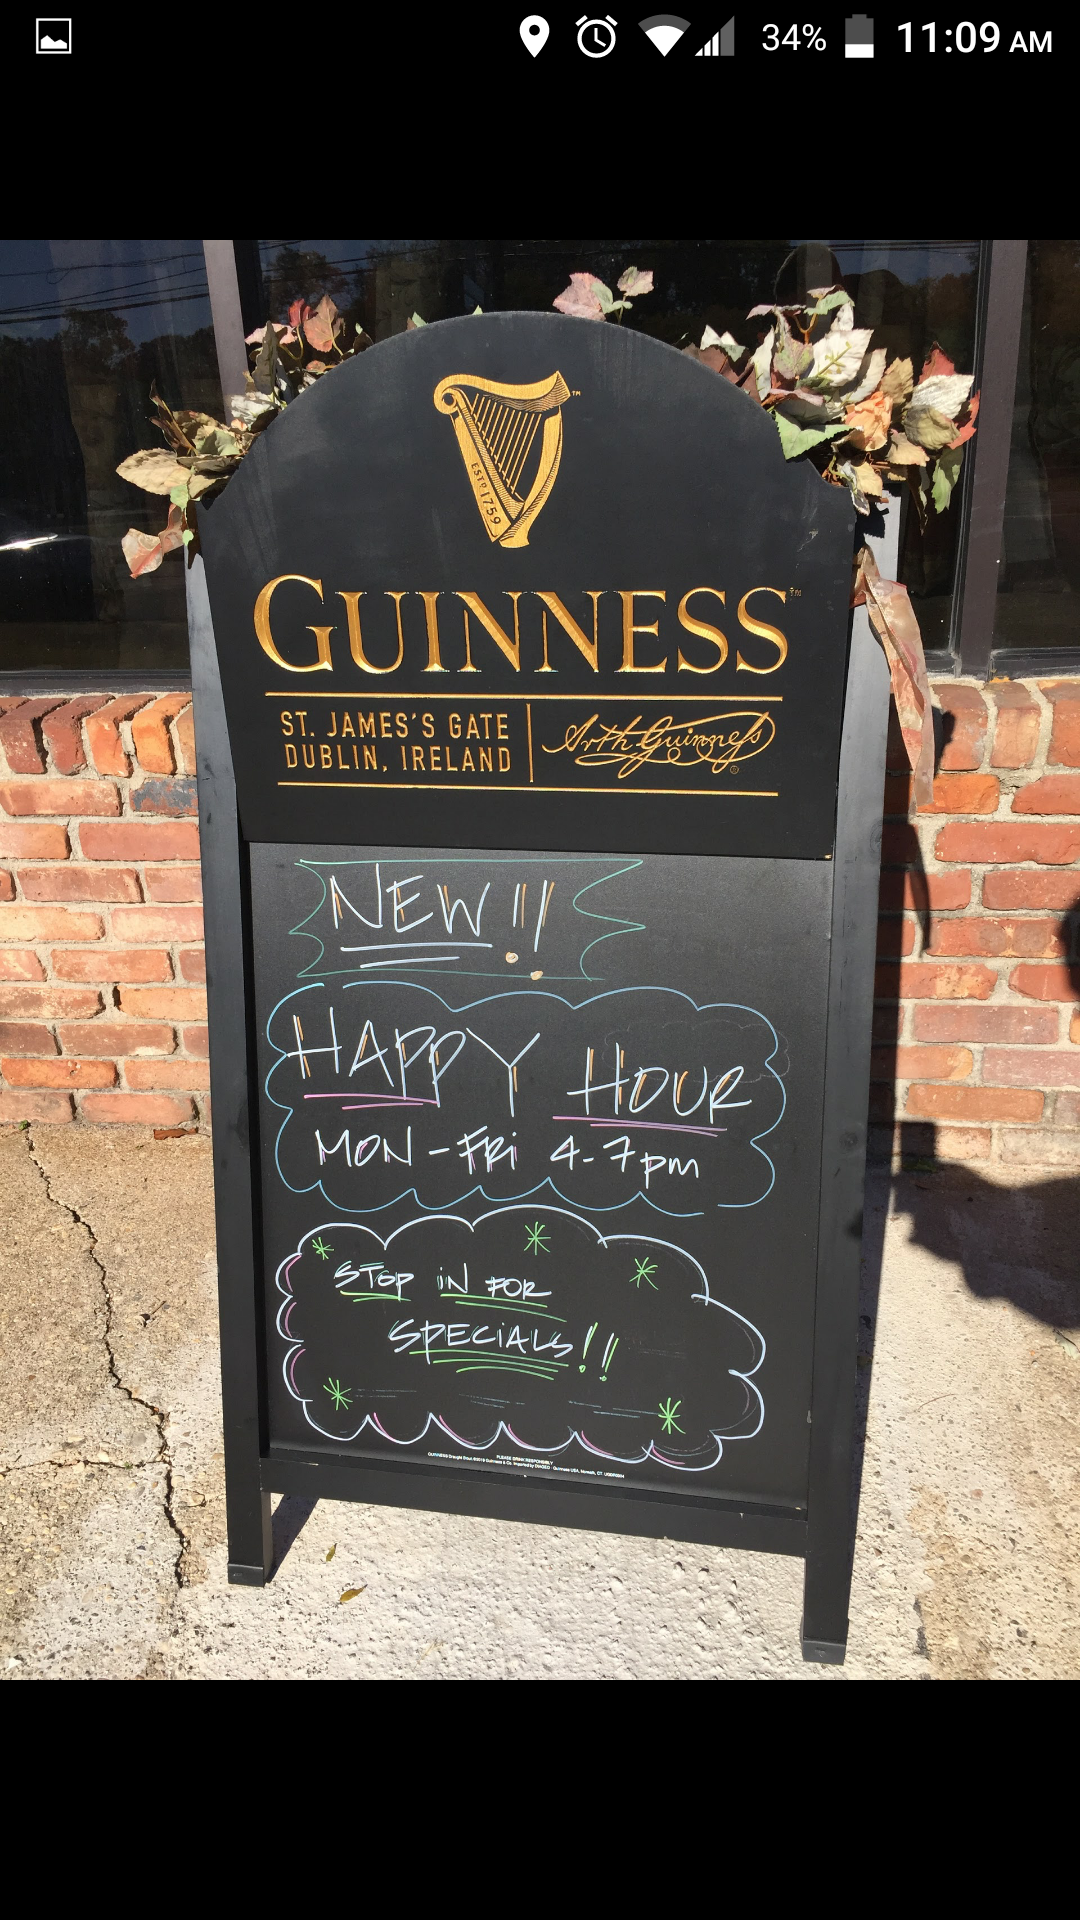 34% 11:09 AM
ESTD 1759
™
GUINNESS™
ST. JAMES'S GATE
DUBLIN, IRELAND
Arth Guinness
®
NEW!!
HAPPY HOUR
MON-FRi 4-7pm
STOP iN FOR
SPECiALS!!
PLEASE DRINK RESPONSIBLY